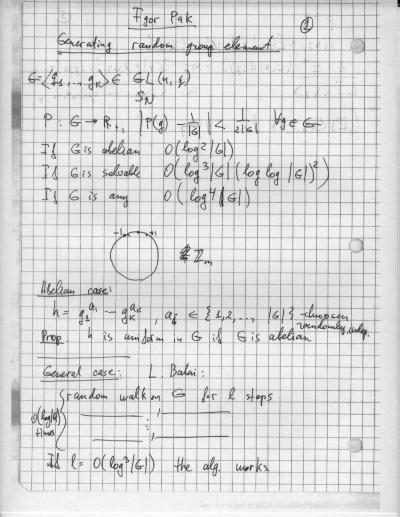 Igor Pak
①
Generating random group element.
G=<g₁,...,gₖ> ∈ GL(n, q)
S_N
P: G → R₊, |P(g) - 1/|G|| < 1/(2|G|) ∀g ∈ G
If G is abelian O(log²|G|)
If G is solvable O(log³|G| (log log |G|)²)
If G is any O(log⁴|G|)
-1 +1
ℤₘ
Abelian case:
h = g₁^a₁ ... gₖ^aₖ, aᵢ ∈ {1,2,..., |G|} - chosen
randomly, indep.
Prop. h is uniform in G if G is abelian
General case: L. Babai:
random walk on G for l steps
O(log|G|)
times
If l = O(log³|G|) the alg. works.